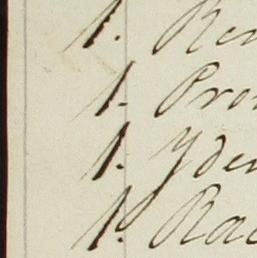 1. Ren
1. Pro
1. Yden
1. Rac